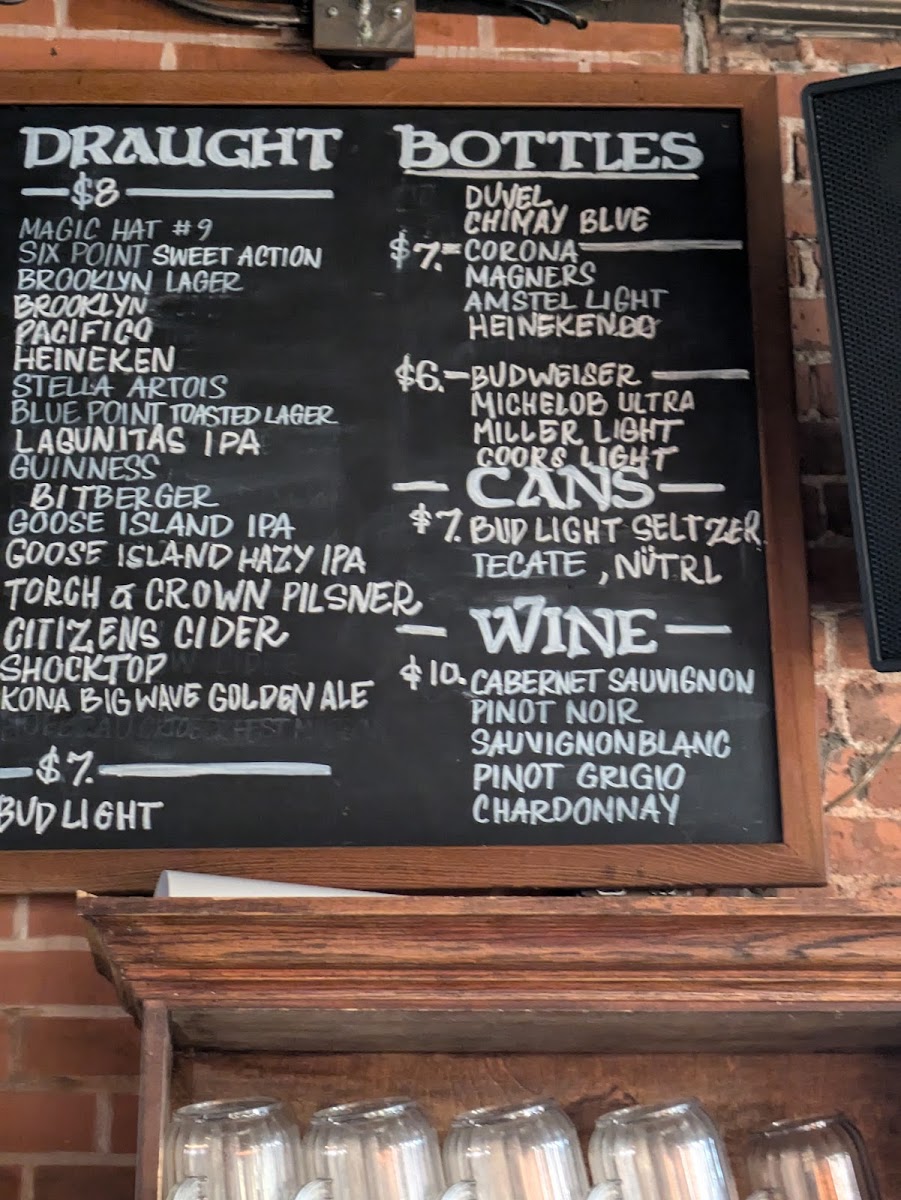 DRAUGHT
$8
MAGIC HAT #9
SIX POINT SWEET ACTION
BROOKLYN LAGER
BROOKLYN
PACIFICO
HEINEKEN
STELLA ARTOIS
BLUE POINT TOASTED LAGER
LAGUNITAS IPA
GUINNESS
BITBERGER
GOOSE ISLAND IPA
GOOSE ISLAND HAZY IPA
TORCH & CROWN PILSNER
CITIZENS CIDER
SHOCKTOP
KONA BIG WAVE GOLDEN ALE
$7.
BUD LIGHT
BOTTLES
DUVEL
CHIMAY BLUE
$7.= CORONA
MAGNERS
AMSTEL LIGHT
HEINEKEN 00
$6.- BUDWEISER
MICHELOB ULTRA
MILLER LIGHT
COORS LIGHT
CANS
$7. BUD LIGHT SELTZER
TECATE, NÜTRL
WINE
$10. CABERNET SAUVIGNON
PINOT NOIR
SAUVIGNON BLANC
PINOT GRIGIO
CHARDONNAY